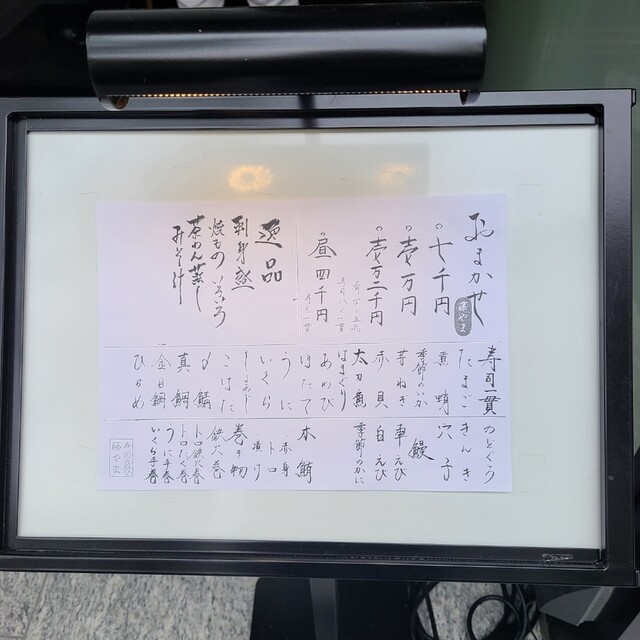 おまかせ
。七千円
。壱万円
。壱万二千円
。昼四千円
逸品
刺身盛
焼もの いろいろ
茶わん蒸し
みそ汁
寿司一貫
たまご
煮蛤
季節のいか
芽ねぎ
赤貝
太刀魚
はまぐり
あわび
ほたて
うに
いくら
こはだ
〆鯖
真鯛
金目鯛
ひらめ
のどぐろ
きんき
穴子
鰻
車えび
白えび
季節のかに
本鮪
赤身
トロ
漬け
巻き物
鉄火巻
トロ鉄火巻
トロたく巻
うに手巻
いくら手巻